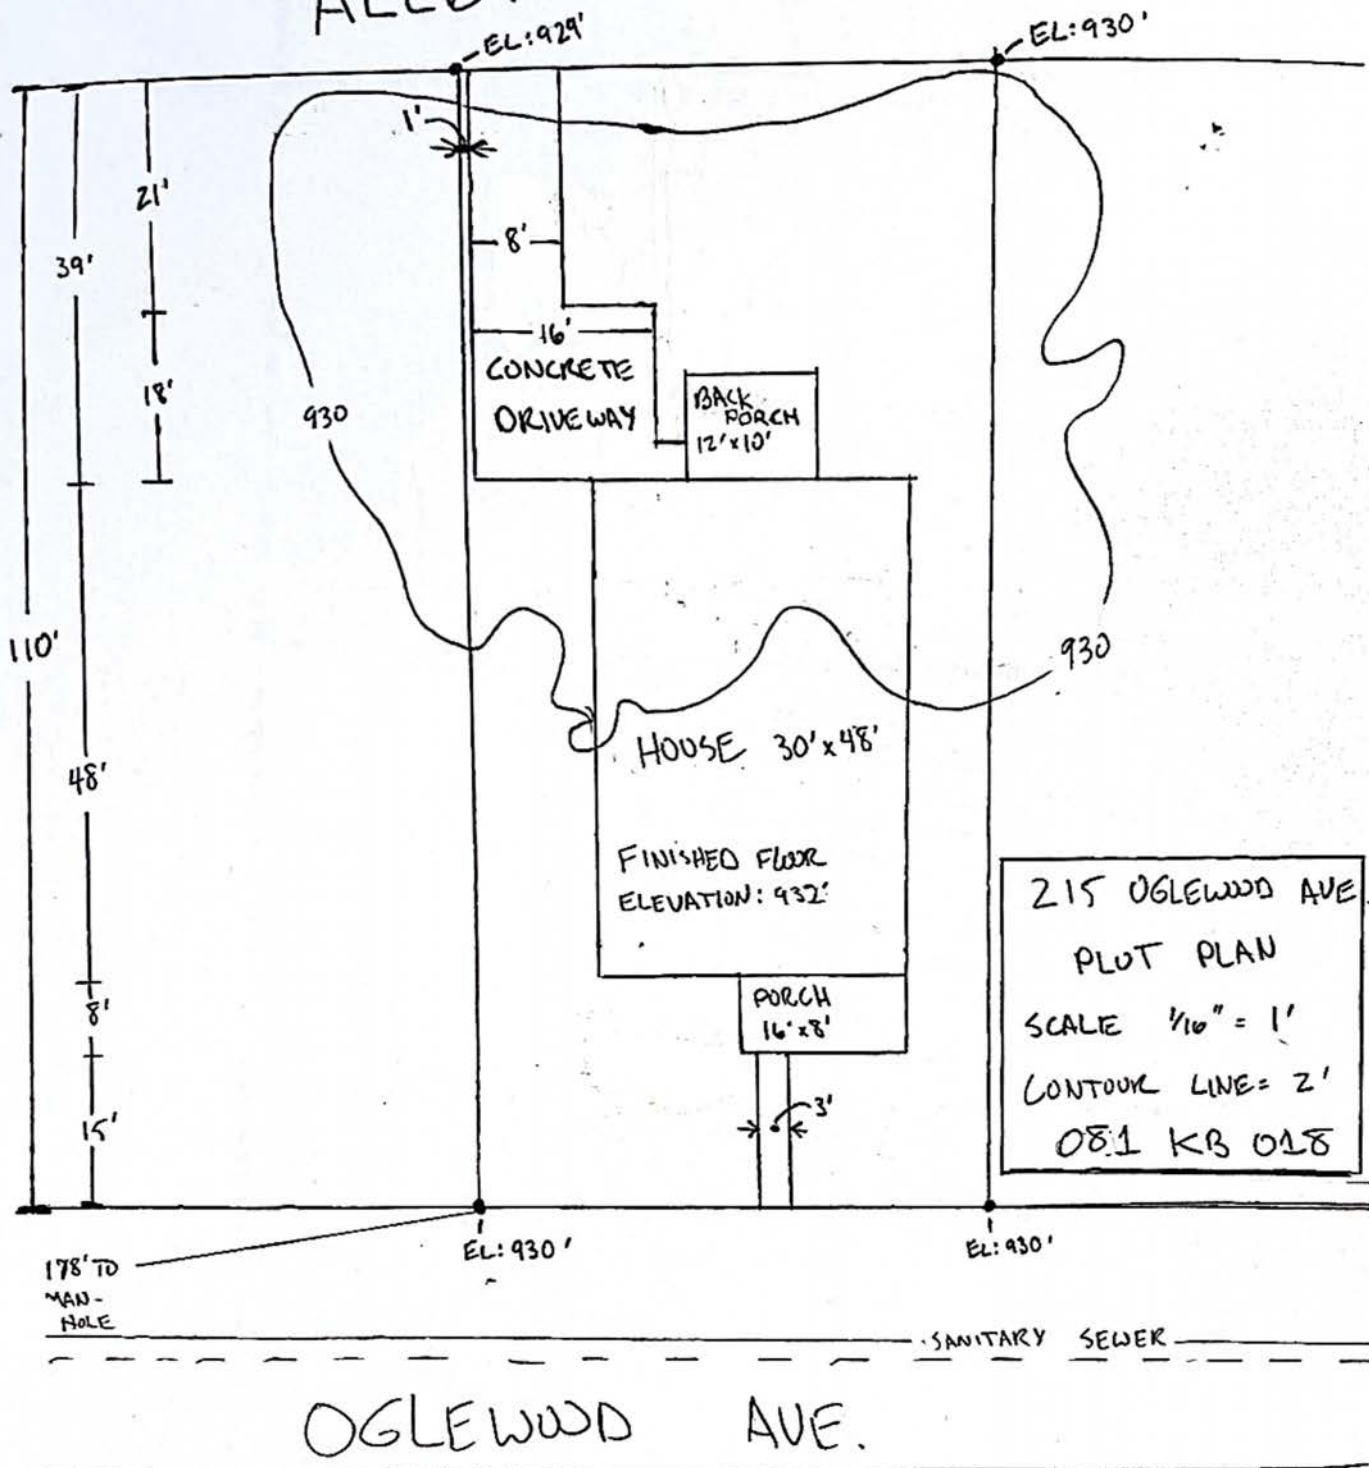 EL: 929'
EL: 930'
1'
21'
39'
8'
16'
18'
CONCRETE
DRIVEWAY
BACK
PORCH
12' x 10'
930
110'
930
48'
HOUSE 30' x 48'
FINISHED FLOOR
ELEVATION: 932'
215 OGLEWOOD AVE.
PLOT PLAN
SCALE 1/16" = 1'
CONTOUR LINE = 2'
081 KB 018
8'
PORCH
16' x 8'
3'
15'
EL: 930'
EL: 930'
178' TO
MAN-
HOLE
SANITARY SEWER
OGLEWOOD AVE.